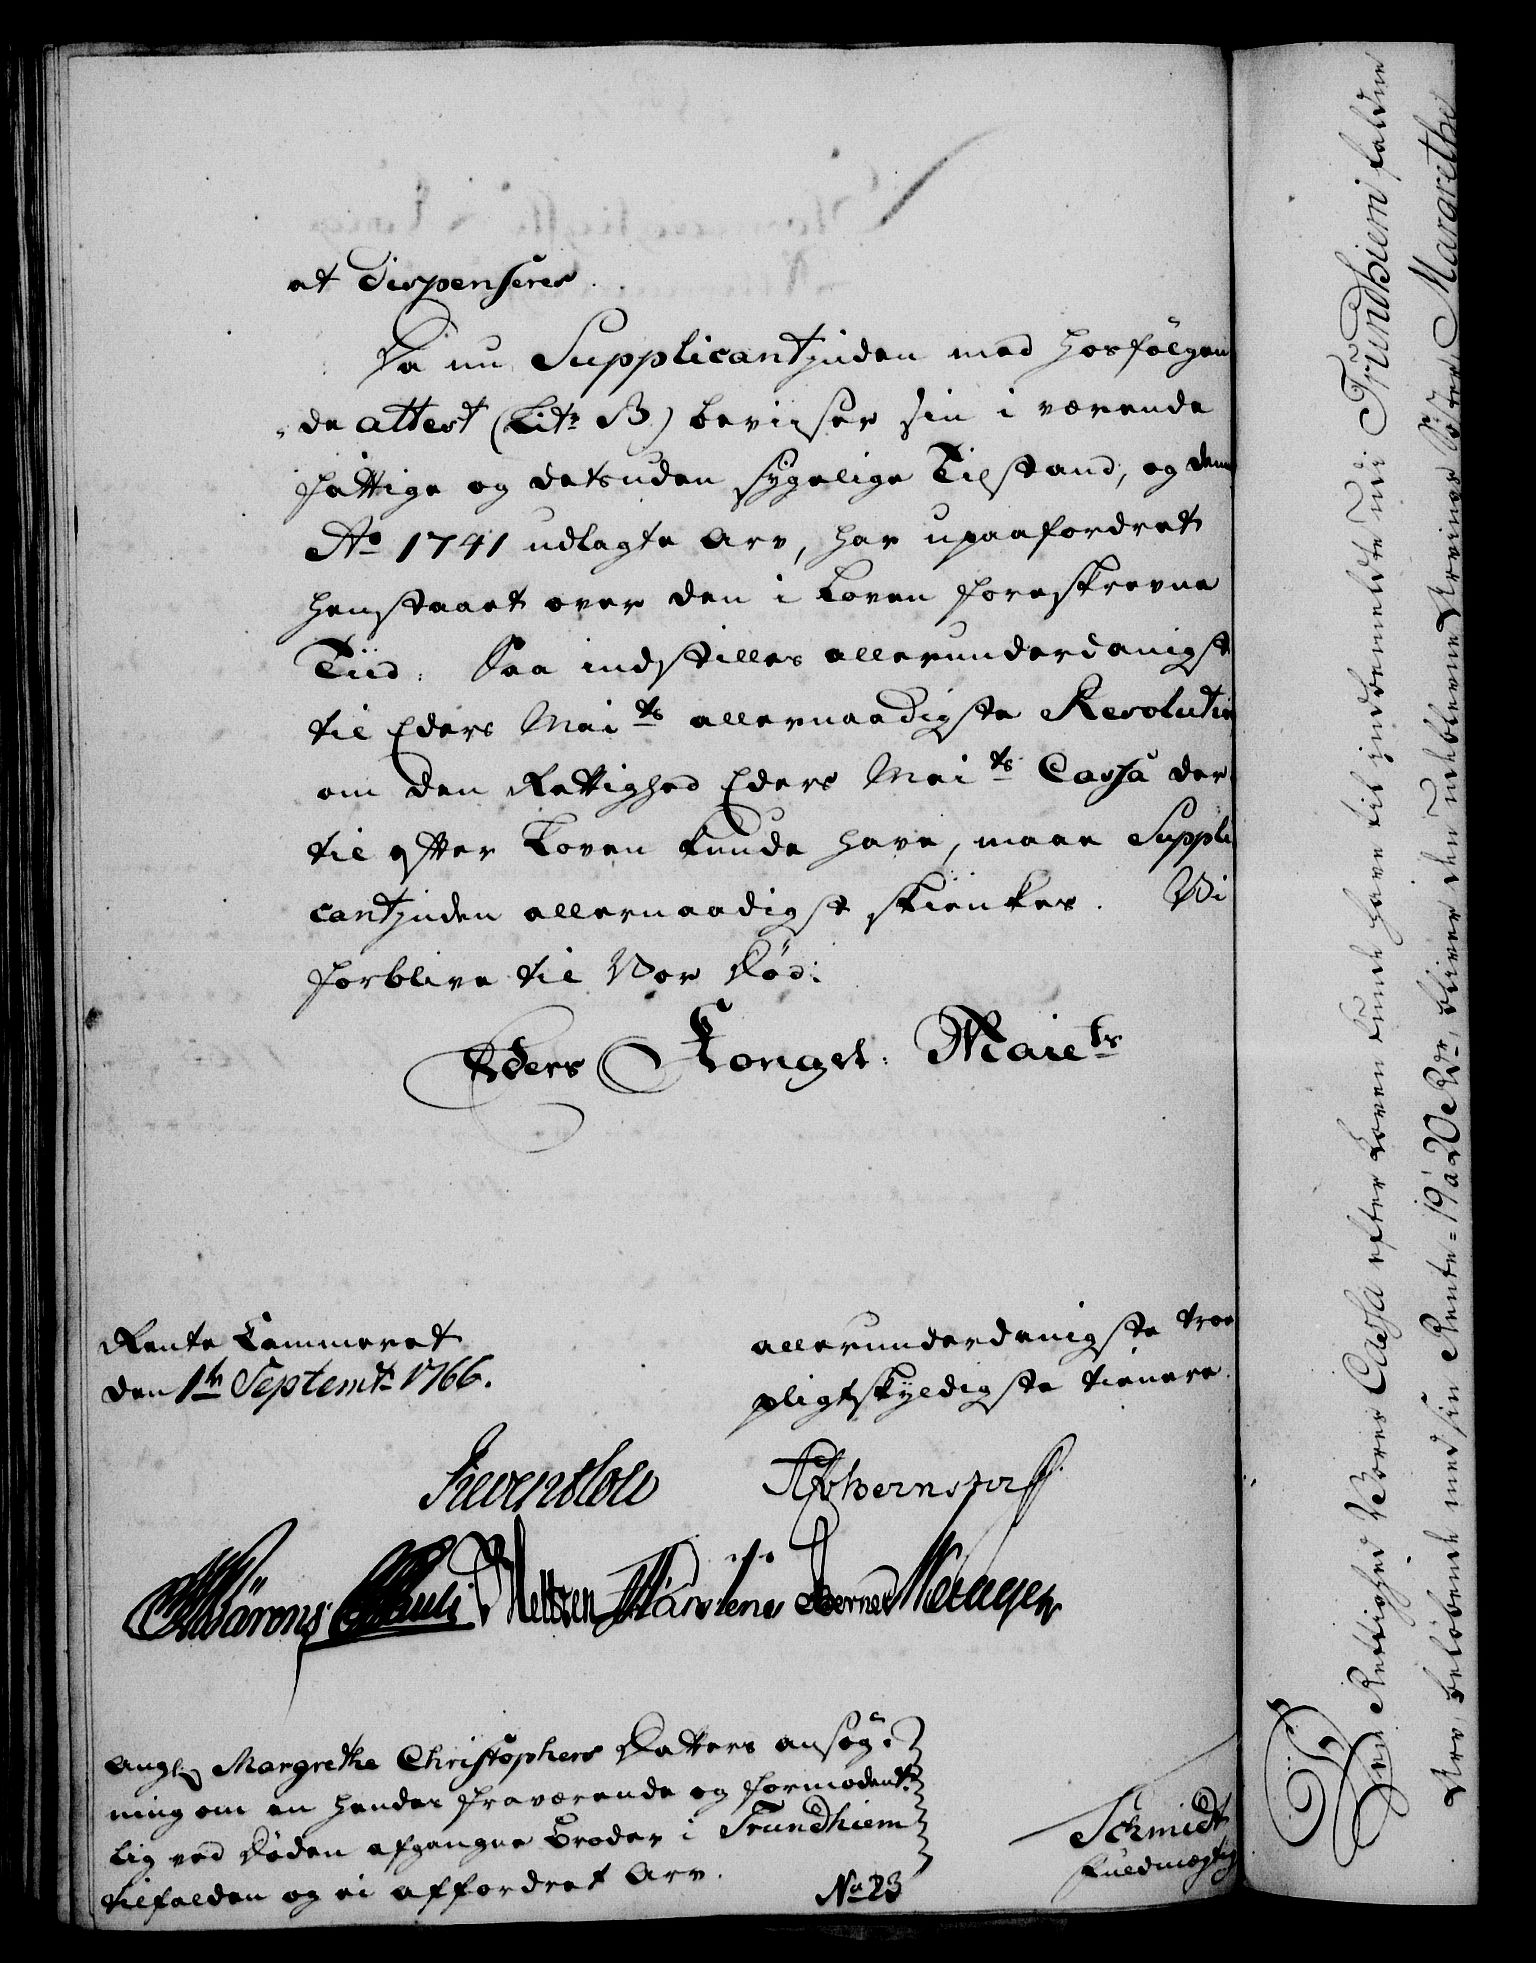 at dispenseres.
Da nu Supplicantinden med hosfølgen
de attest (Litr B) beviiser sin i værende
fattige og desuden sygelige Tilstand, og den
Ao 1741 udlagte Arv, har upaafordret
henstaaet over den i Loven foreskrevne
Tiid; Saa indstilles allerunderdanigst
til Eders Maits allernaadigste Resolution
om den Rettighed Eders Maits Cassa der
til efter Loven kunde have, maae Suppli
cantinden allernaadigst skienkes. Vi
forblive til Vor Død:
Eders Kongel: Maiets
Rente Cammeret
den 1te Septembr 1766.
allerunderdanigste troe
pligtskyldigste tienere.
Angl: Margrethe Christophers Datters ansøg:
ning om en hendes fraværende og formodent
lig ved Døden afgangne Broder i Trundhiem
tilfalden og ei affordret Arv.
No 23
Schmidt
fuldmægtig
Den Rettighed Vores Cassa efter Loven kunde have til indbemeldte udi Trundhiem faldne
Arv, beløbende med sin Rente = 19 a 20 Rdr, bliver den udeblevne Arvings Søster, Margrethe